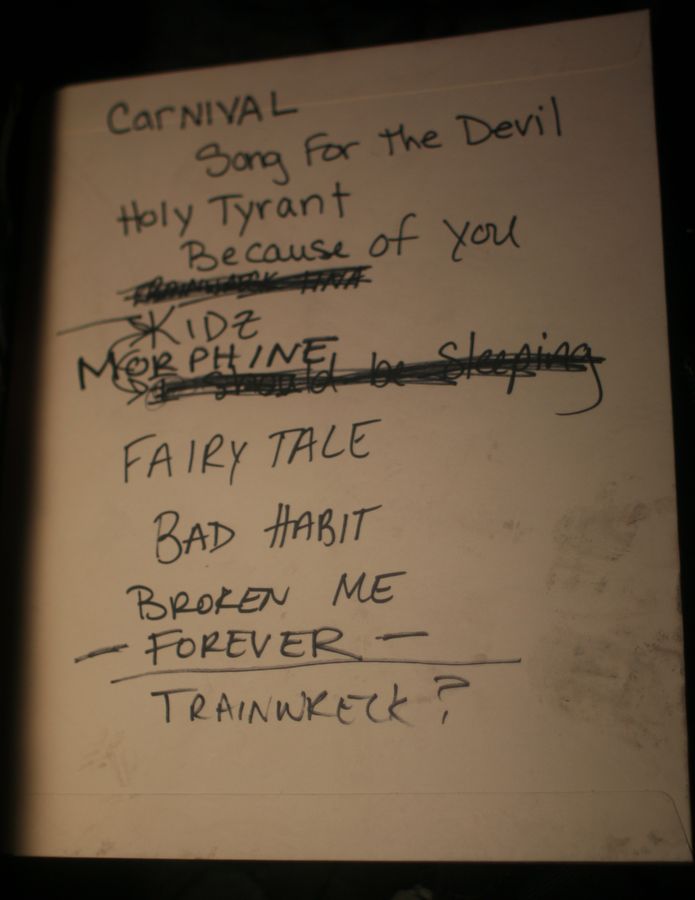 CarNIVAL
Song For the Devil
Holy Tyrant
Because of you
KIDZ
MORPHINE
I should be Sleeping
FAIRY TALE
BAD HABIT
BROKEN ME
— FOREVER —
TRAINWRECK?